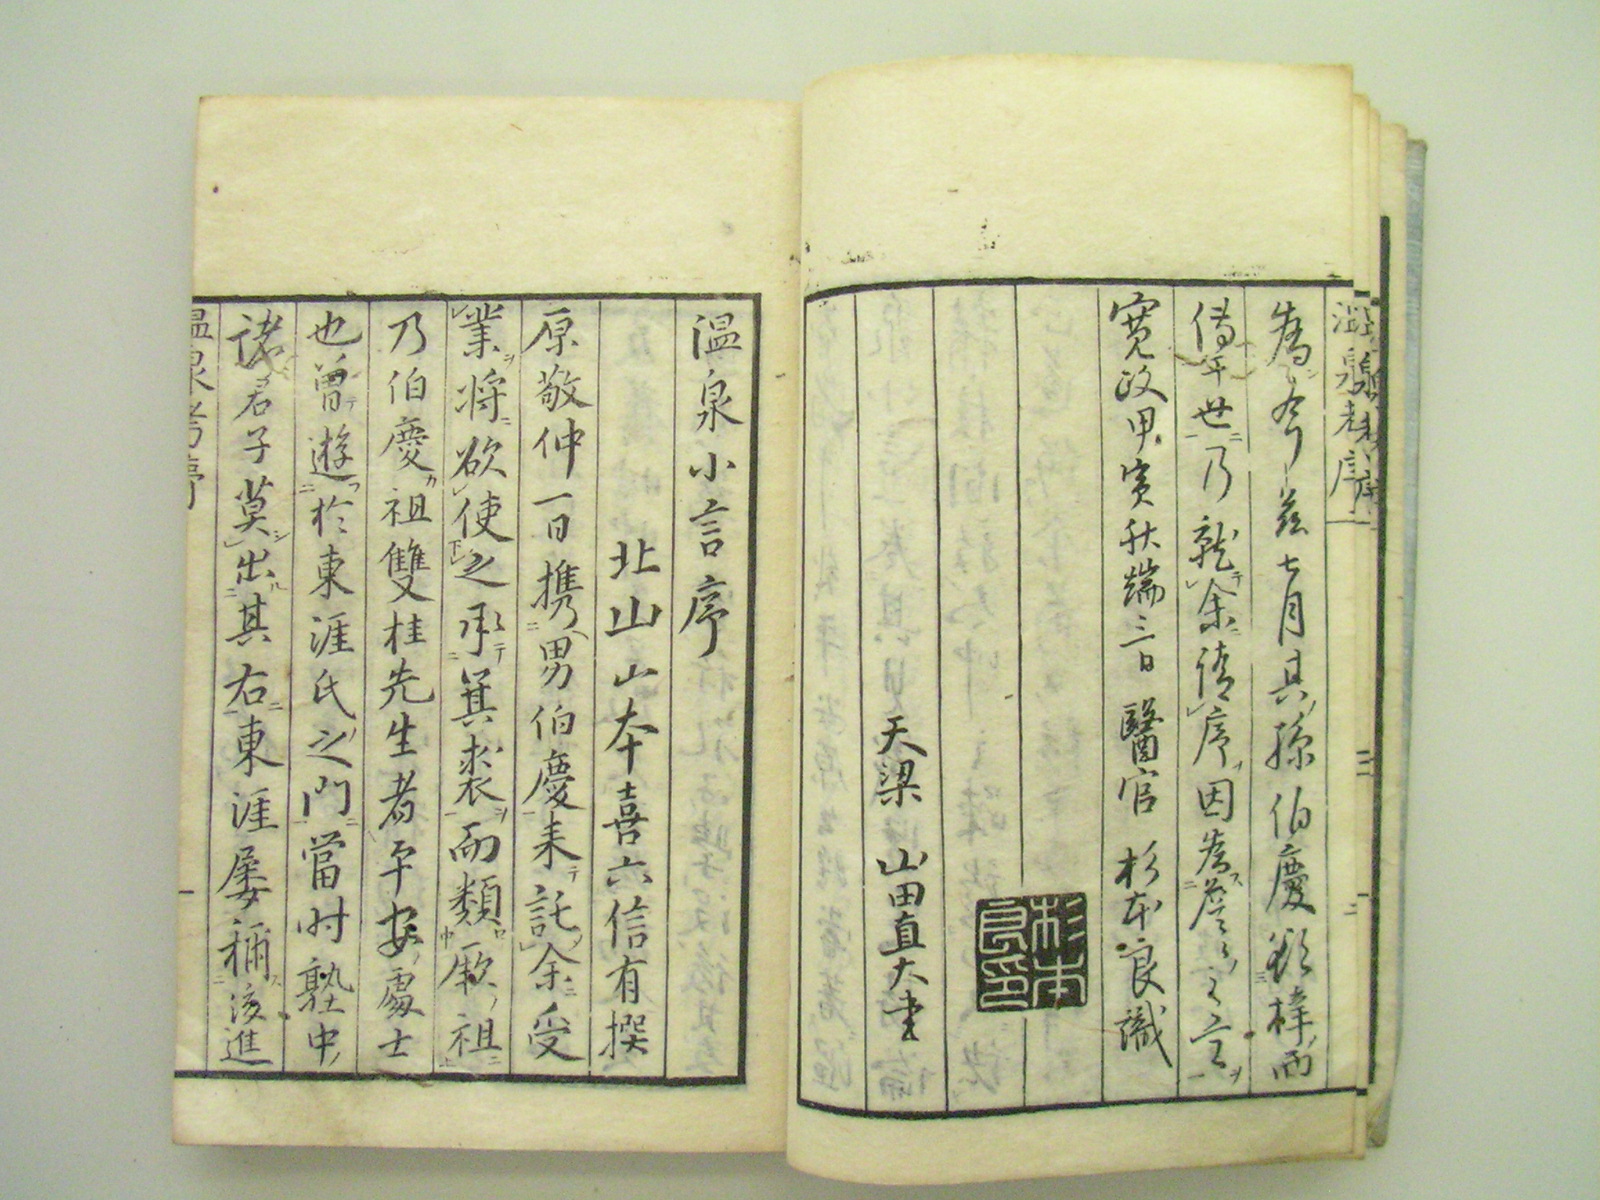 温泉考序
為今茲七月其孫伯慶欲梓而
傳世乃就余請序因為
寛政甲寅秋端三日 醫官 杉本良識
杉本
良印
天梁 山田直大書
温泉小言序
北山 山本喜六信有撰
原敬仲一日携男伯慶来託余受
業将欲使之承箕裘而類厥祖
乃伯慶祖雙桂先生者平安處士
也曽遊於東涯氏之門當时塾中
諸君子莫出其右東涯屡稱該進
温泉考序